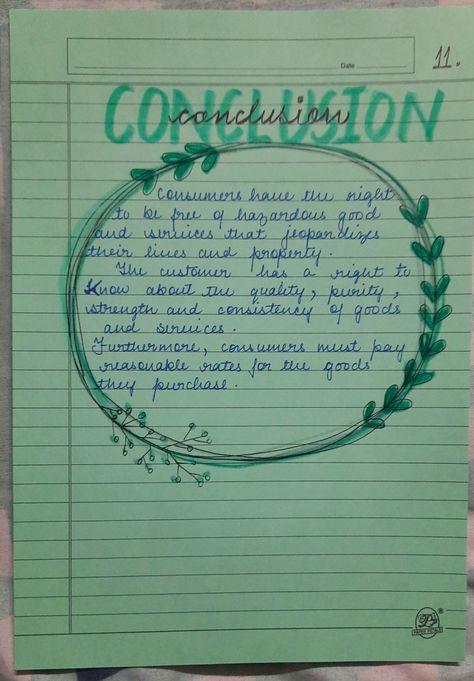 Date
11.
CONCLUSION
conclusion
Consumers have the right
to be free of hazardous good
and services that jeopardizes
their lives and property.
The customer has a right to
know about the quality, purity,
strength and consistency of goods
and services.
Furthermore, consumers must pay
reasonable rates for the goods
they purchase.
PAPER PETALS